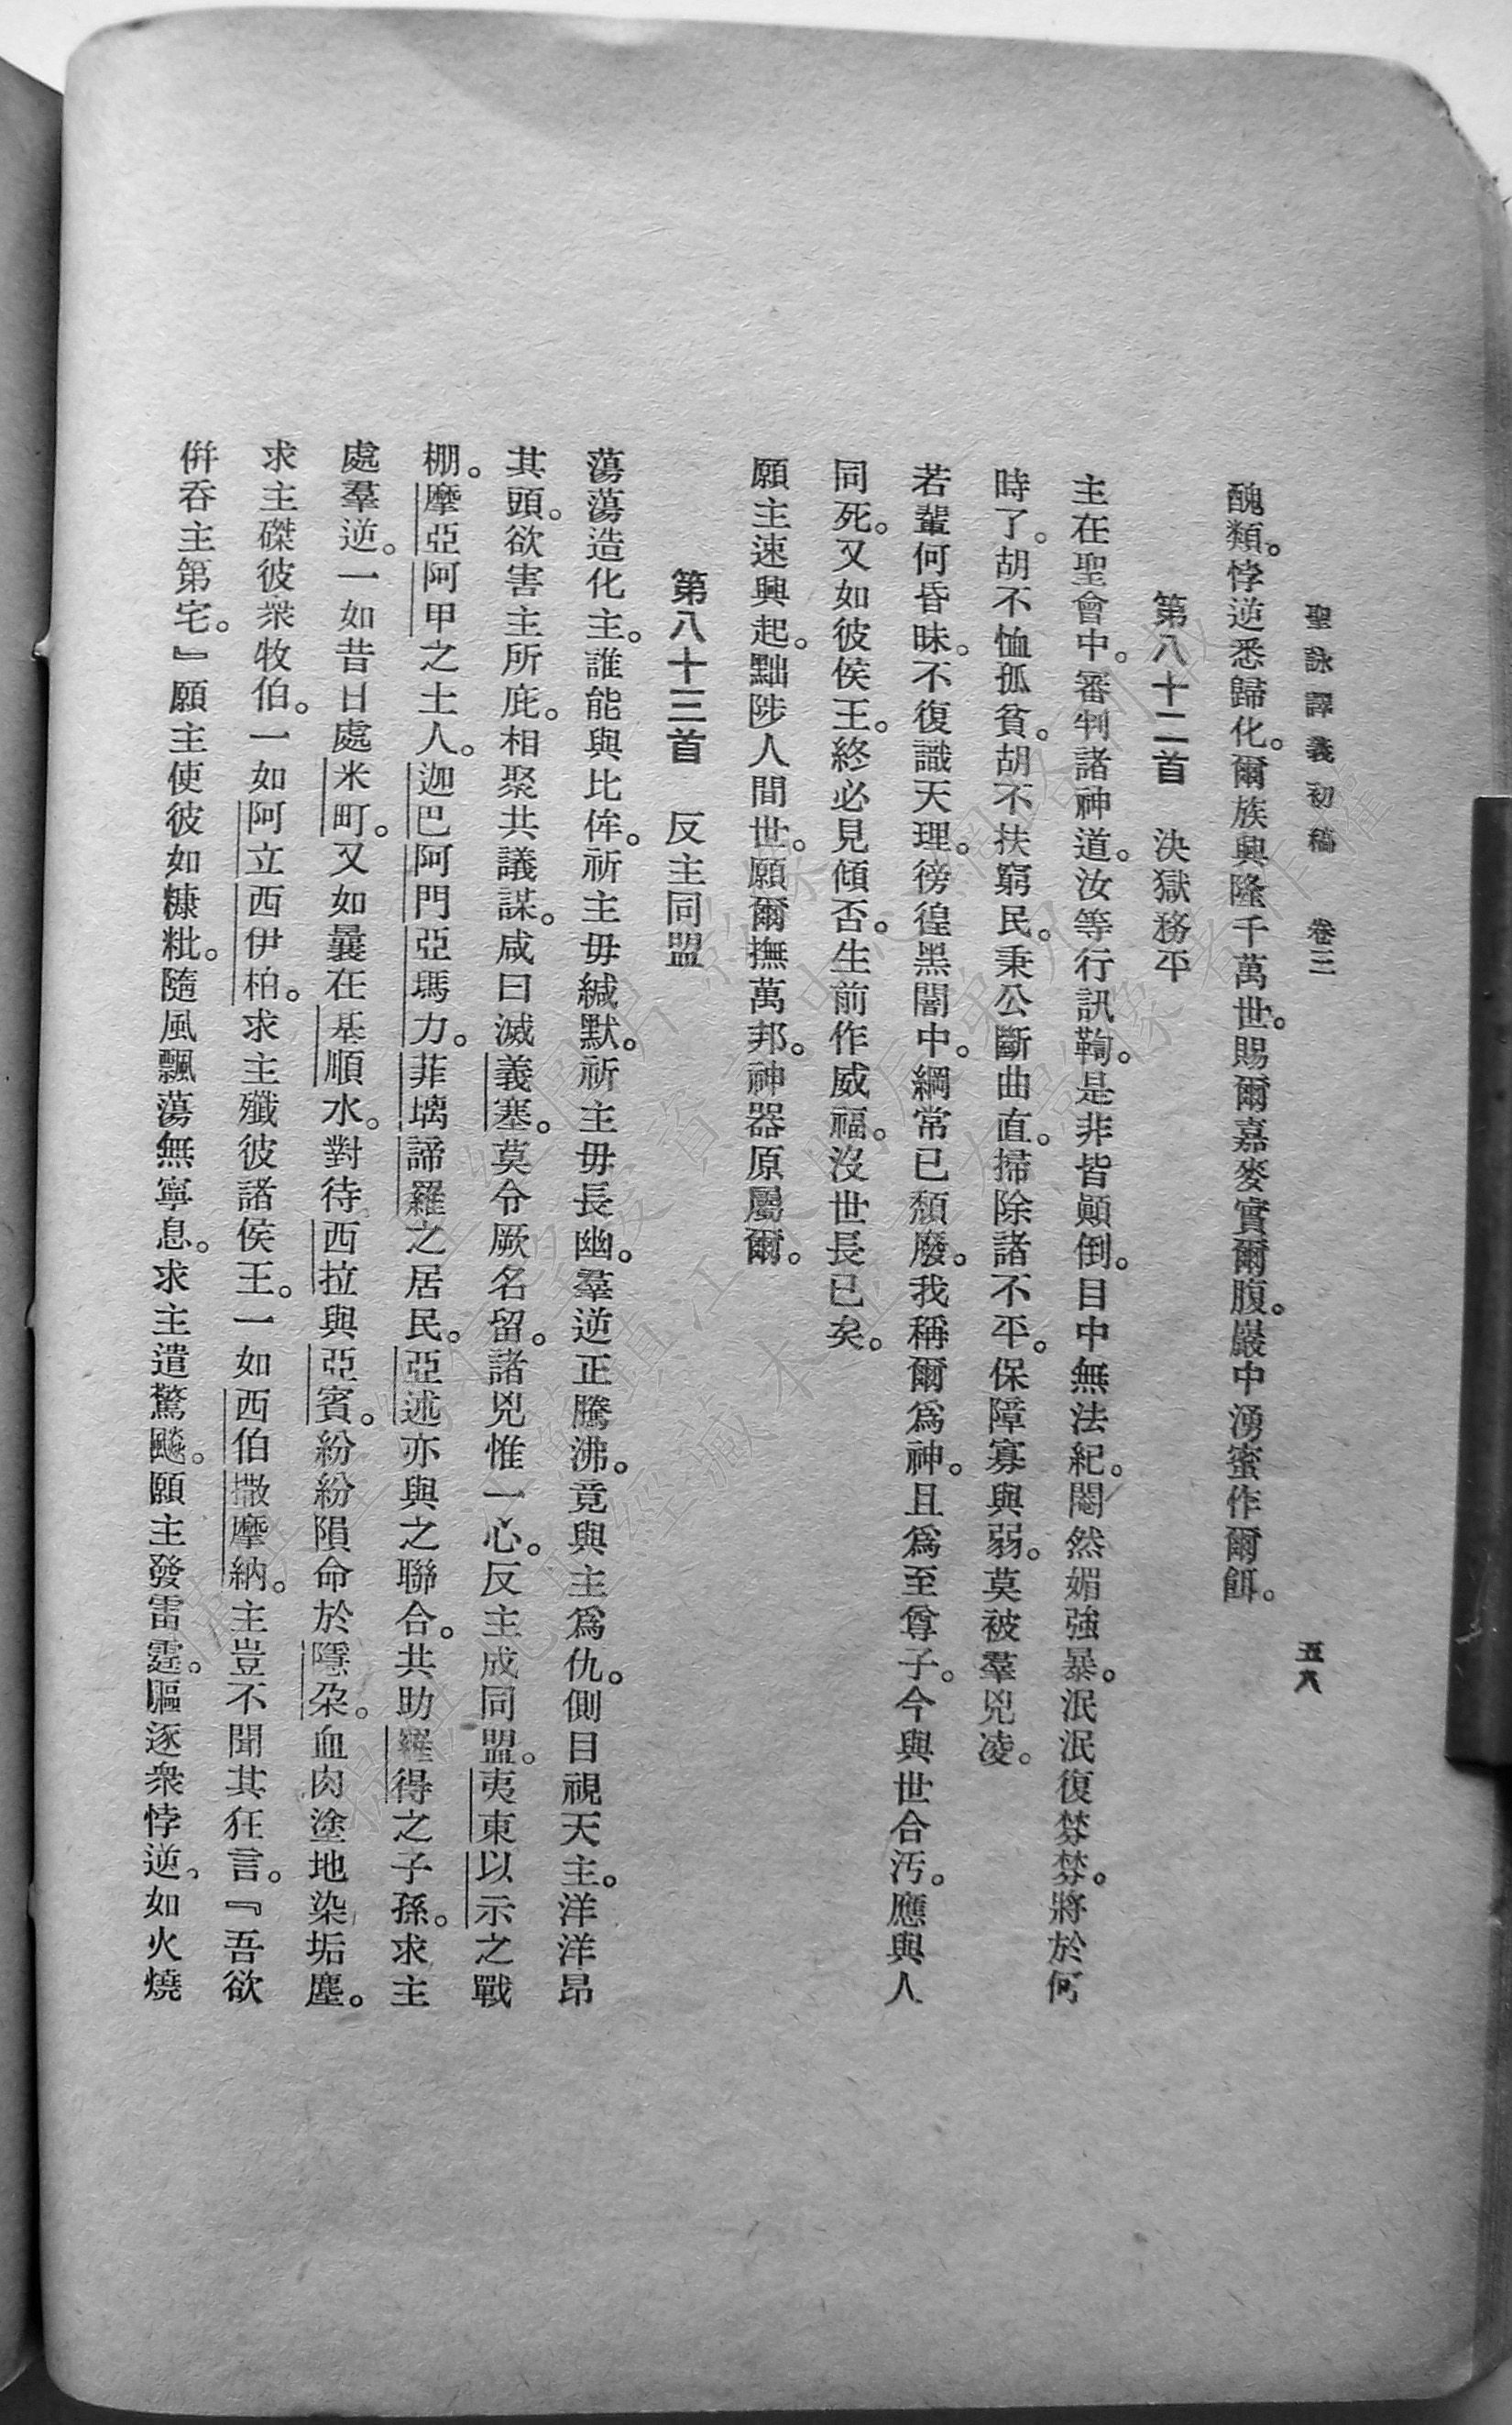 聖詠譯義初稿　卷三　五八
醜類。悖逆悉歸化。爾族興隆千萬世。賜爾嘉麥實爾腹。巖中湧蜜作爾餌。
第八十二首　決獄務平
主在聖會中。審判諸神道。汝等行訊鞫。是非皆顚倒。目中無法紀。閹然媚強暴。泯泯復棼棼。將於何
時了。胡不恤孤貧。胡不扶窮民。秉公斷曲直。掃除諸不平。保障寡與弱。莫被羣兇凌。
若輩何昏昧。不復識天理。徬徨黑闇中。綱常已頹廢。我稱爾爲神。且爲至尊子。今與世合汚。應與人
同死。又如彼侯王。終必見傾否。生前作威福。沒世長已矣。
願主速興起。黜陟人間世。願爾撫萬邦。神器原屬爾。
第八十三首　反主同盟
蕩蕩造化主。誰能與比侔。祈主毋緘默。祈主毋長幽。羣逆正騰沸。竟與主爲仇。側目視天主。洋洋昂
其頭。欲害主所庇。相聚共議謀。咸曰滅義塞。莫令厥名留。諸兇惟一心。反主成同盟。夷東以示之戰
棚。摩亞阿甲之士人。迦巴阿門亞瑪力。菲璃諦羅之居民。亞述亦與之聯合。共助羅得之子孫。求主
處羣逆。一如昔日處米町。又如曩在基順水。對待西拉與亞賓。紛紛隕命於隱朶。血肉塗地染垢塵。
求主磔彼衆牧伯。一如阿立西伊柏。求主殲彼諸侯王。一如西伯撒摩納。主豈不聞其狂言。『吾欲
併吞主第宅。』願主使彼如糠粃。隨風飄蕩無寧息。求主遣驚飈。願主發雷霆。驅逐衆悖逆。如火燒